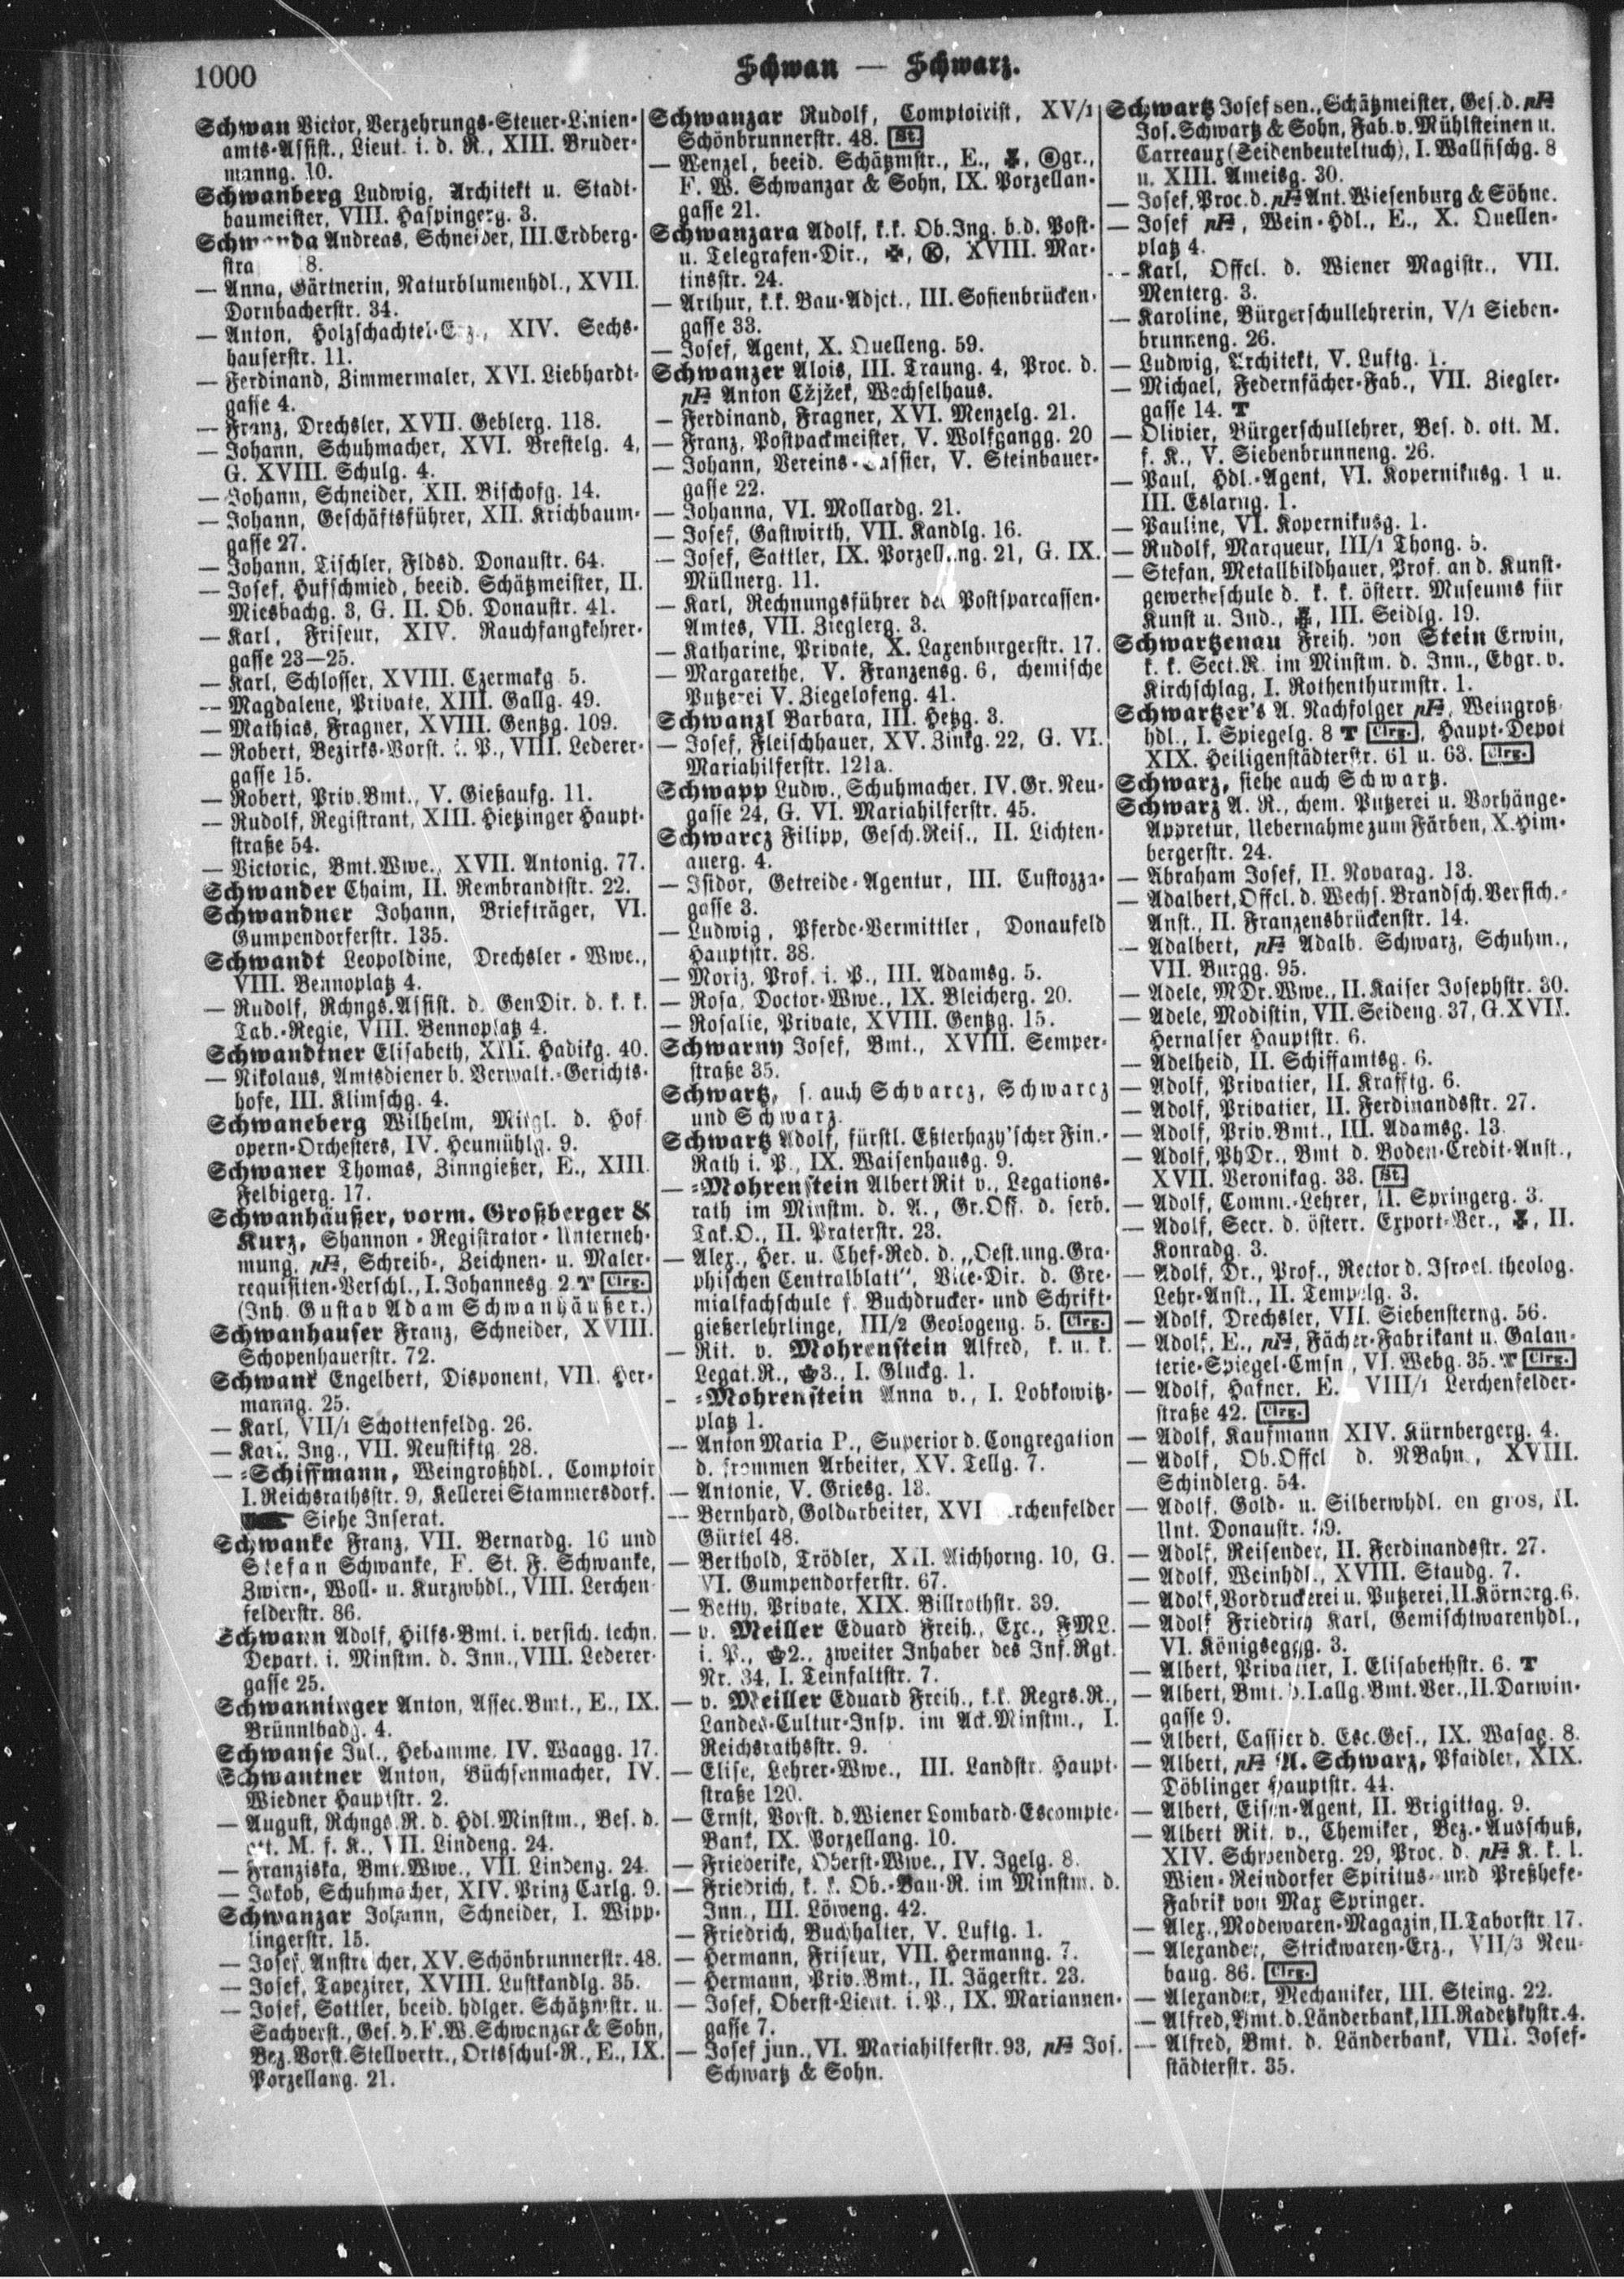 1000
Schwan — Schwarz.
Schwan Victor, Verzehrungs-Steuer-Linien-
amts-Assist., Lieut. i. d. R., XIII. Bruder-
manng. 10.
Schwanberg Ludwig, Architekt u. Stadt-
baumeister, VIII. Haspingerg. 3.
Schwanda Andreas, Schneider, III. Erdberg-
8.
— Anna, Gärtnerin, Naturblumenhdl., XVII.
Dornbacherstr. 34.
— Anton, Holzschachtel-Erz., XIV. Sechs-
hauserstr. 11.
— Ferdinand, Zimmermaler, XVI. Liebhardt-
gasse 4.
— Franz, Drechsler, XVII. Geblerg. 118.
— Johann, Schuhmacher, XVI. Brestelg. 4,
G. XVIII. Schulg. 4.
— Johann, Schneider, XII. Bischofg. 14.
— Johann, Geschäftsführer, XII. Krichbaum-
gasse 27.
— Johann, Tischler, Fldsd. Donaustr. 64.
— Josef, Hufschmied, beeid. Schätzmeister, II.
Miesbachg. 3, G. II. Ob. Donaustr. 41.
— Karl, Friseur, XIV. Rauchfangkehrer-
gasse 23—25.
— Karl, Schlosser, XVIII. Czermakg. 5.
— Magdalene, Private, XIII. Gallg. 49.
— Mathias, Fragner, XVIII. Gentzg. 109.
— Robert, Bezirks-Vorst. i. P., VIII. Lederer-
gasse 15.
— Robert, Priv.Bmt., V. Gießaufg. 11.
— Rudolf, Registrant, XIII. Hietzinger Haupt-
straße 54.
— Victoria, Bmt.Wwe., XVII. Antonig. 77.
Schwander Chaim, II. Rembrandtstr. 22.
Schwandner Johann, Briefträger, VI.
Gumpendorferstr. 135.
Schwandt Leopoldine, Drechsler-Wwe.,
VIII. Bennoplatz 4.
— Rudolf, Rchngs.Assist. d. GenDir. d. k. k.
Tab.-Regie, VIII. Bennoplatz 4.
Schwandtner Elisabeth, XIII. Hadikg. 40.
— Nikolaus, Amtsdiener b. Verwalt.-Gerichts-
hofe, III. Klimschg. 4.
Schwaneberg Wilhelm, Mitgl. d. Hof
opern-Orchesters, IV. Heumühlg. 9.
Schwaner Thomas, Zinngießer, E., XIII.
Felbigerg. 17.
Schwanhäußer, vorm. Großberger &
Kurz, Shannon-Registrator-Unterneh-
mung, pF, Schreib-, Zeichnen- u. Maler-
requisiten-Verschl., I. Johannesg. 2 T Clrg.
(Inh. Gustav Adam Schwanhäußer.)
Schwanhauser Franz, Schneider, XVIII.
Schopenhauerstr. 72.
Schwank Engelbert, Disponent, VII. Her-
manng. 25.
— Karl, VII/1 Schottenfeldg. 26.
— Karl, Ing., VII. Neustiftg. 28.
— =Schiffmann, Weingroßhdl., Comptoir
I. Reichsrathsstr. 9, Kellerei Stammersdorf.
Siehe Inserat.
Schwanke Franz, VII. Bernardg. 16 und
Stefan Schwanke, F. St. F. Schwanke,
Zwirn-, Woll- u. Kurzwhdl., VIII. Lerchen-
felderstr. 86.
Schwann Adolf, Hilfs-Bmt. i. versich. techn.
Depart. i. Minstm. d. Inn., VIII. Lederer-
gasse 25.
Schwanninger Anton, Assec.Bmt., E., IX.
Brünnlbadg. 4.
Schwanse Jul., Hebamme, IV. Waagg. 17.
Schwantner Anton, Büchsenmacher, IV.
Wiedner Hauptstr. 2.
— August, Rchngs.R. d. Hdl.Minstm., Bes. d.
ott. M. f. K., VII. Lindeng. 24.
— Franziska, Bmt.Wwe., VII. Lindeng. 24.
— Jakob, Schuhmacher, XIV. Prinz Carlg. 9.
Schwanzar Johann, Schneider, I. Wipp-
lingerstr. 15.
— Josef, Anstreicher, XV. Schönbrunnerstr. 48.
— Josef, Tapezirer, XVIII. Lustkandlg. 35.
— Josef, Sattler, beeid. hdlger. Schätzmstr. u.
Sachverst., Ges. d. F. W. Schwanzar & Sohn,
Bez.Vorst.Stellvertr., Ortsschul-R., E., IX.
Porzellang. 21.
Schwanzar Rudolf, Comptoirist, XV/1
Schönbrunnerstr. 48. St.
— Wenzel, beeid. Schätzmstr., E., gr.,
F. W. Schwanzar & Sohn, IX. Porzellan-
gasse 21.
Schwanzara Adolf, k.k. Ob.Ing. b.d. Post-
u. Telegrafen-Dir., XVIII. Mar-
tinsstr. 24.
— Arthur, k.k. Bau-Adjct., III. Sofienbrücken-
gasse 33.
— Josef, Agent, X. Quelleng. 59.
Schwanzer Alois, III. Traung. 4, Proc. d.
pF Anton Cžjžek, Wechselhaus.
— Ferdinand, Fragner, XVI. Menzelg. 21.
— Franz, Postpackmeister, V. Wolfgangg. 20
— Johann, Vereins-Cassier, V. Steinbauer-
gasse 22.
— Johanna, VI. Mollardg. 21.
— Josef, Gastwirth, VII. Kandlg. 16.
— Josef, Sattler, IX. Porzellang. 21, G. IX.
Müllnerg. 11.
— Karl, Rechnungsführer des Postsparcassen-
Amtes, VII. Zieglerg. 3.
— Katharine, Private, X. Laxenburgerstr. 17.
— Margarethe, V. Franzensg. 6, chemische
Putzerei V. Ziegelofeng. 41.
Schwanzl Barbara, III. Hetzg. 3.
— Josef, Fleischhauer, XV. Zinkg. 22, G. VI.
Mariahilferstr. 121a.
Schwapp Ludw., Schuhmacher, IV. Gr. Neu-
gasse 24, G. VI. Mariahilferstr. 45.
Schwarcz Filipp, Gesch.Reis., II. Lichten-
auerg. 4.
— Isidor, Getreide-Agentur, III. Custozza-
gasse 3.
— Ludwig, Pferde-Vermittler, Donaufeld
Hauptstr. 38.
— Moriz, Prof. i. P., III. Adamsg. 5.
— Rosa, Doctor-Wwe., IX. Bleicherg. 20.
— Rosalie, Private, XVIII. Gentzg. 15.
Schwarny Josef, Bmt., XVIII. Semper-
straße 35.
Schwartz, s. auch Schvarcz, Schwarcz
und Schwarz.
Schwartz Adolf, fürstl. Eßterhazy'scher Fin.-
Rath i. P., IX. Waisenhausg. 9.
— =Mohrenstein Albert Rit v., Legations-
rath im Minstm. d. A., Gr.Off. d. serb.
Tak.O., II. Praterstr. 23.
— Alex., Her. u. Chef-Red. d. „Oest.ung.Gra-
phischen Centralblatt“, Vice-Dir. d. Gre-
mialfachschule f. Buchdrucker- und Schrift-
gießerlehrlinge, III/2 Geologeng. 5. Clrg.
— Rit. v. Mohrenstein Alfred, k. u. k.
Legat.R., 3., I. Gluckg. 1.
— =Mohrenstein Anna v., I. Lobkowitz-
platz 1.
— Anton Maria P., Superior d. Congregation
d. frommen Arbeiter, XV. Tellg. 7.
— Antonie, V. Griesg. 13.
— Bernhard, Goldarbeiter, XVI. Lerchenfelder
Gürtel 48.
— Berthold, Trödler, XII. Aichhorng. 10, G.
VI. Gumpendorferstr. 67.
— Betty, Private, XIX. Billrothstr. 39.
— v. Meiller Eduard Freih., Exc., FML.
i. P., 2., zweiter Inhaber des Inf.Rgt.
Nr. 34, I. Teinfaltstr. 7.
— v. Meiller Eduard Freih., k.k. Regrs.R.,
Landes-Cultur-Insp. im Ack.Minstm., I.
Reichsrathsstr. 9.
— Elise, Lehrer-Wwe., III. Landstr. Haupt-
straße 120.
— Ernst, Vorst. d. Wiener Lombard-Escompte-
Bank, IX. Porzellang. 10.
— Friederike, Oberst-Wwe., IV. Igelg. 8.
— Friedrich, k. k. Ob.-Bau-R. im Minstm. d.
Inn., III. Löweng. 42.
— Friedrich, Buchhalter, V. Luftg. 1.
— Hermann, Friseur, VII. Hermanng. 7.
— Hermann, Priv.Bmt., II. Jägerstr. 23.
— Josef, Oberst-Lieut. i. P., IX. Mariannen-
gasse 7.
— Josef jun., VI. Mariahilferstr. 93, pF Jos.
Schwartz & Sohn.
Schwartz Josef sen., Schätzmeister, Ges. d. pF
Jos. Schwartz & Sohn, Fab. v. Mühlsteinen u.
Carreaux (Seidenbeuteltuch), I. Wallfischg. 8
u. XIII. Ameisg. 30.
— Josef, Proc. d. pF Ant. Wiesenburg & Söhne.
— Josef pF, Wein-Hdl., E., X. Quellen-
platz 4.
— Karl, Offcl. d. Wiener Magistr., VII.
Menterg. 3.
— Karoline, Bürgerschullehrerin, V/1 Sieben-
brunneng. 26.
— Ludwig, Architekt, V. Luftg. 1.
— Michael, Federnfächer-Fab., VII. Ziegler-
gasse 14. T
— Olivier, Bürgerschullehrer, Bes. d. ott. M.
f. K., V. Siebenbrunneng. 26.
— Paul, Hdl.-Agent, VI. Kopernikusg. 1 u.
III. Eslarng. 1.
— Pauline, VI. Kopernikusg. 1.
— Rudolf, Marqueur, III/1 Thong. 5.
— Stefan, Metallbildhauer, Prof. an d. Kunst-
gewerbeschule d. k. k. österr. Museums für
Kunst u. Ind., III. Seidlg. 19.
Schwartzenau Freih. von Stein Erwin,
k. k. Sect.R. im Minstm. d. Inn., Ebgr. v.
Kirchschlag, I. Rothenthurmstr. 1.
Schwartzer's A. Nachfolger pF, Weingroß-
hdl., I. Spiegelg. 8 T Clrg., Haupt-Depot
XIX. Heiligenstädterstr. 61 u. 63. Clrg.
Schwarz, siehe auch Schwartz.
Schwarz A. R., chem. Putzerei u. Vorhänge-
Appretur, Uebernahme zum Färben, X. Him-
bergerstr. 24.
— Abraham Josef, II. Novarag. 13.
— Adalbert, Offcl. d. Wechs. Brandsch. Versich.-
Anst., II. Franzensbrückenstr. 14.
— Adalbert, pF Adalb. Schwarz, Schuhm.,
VII. Burgg. 95.
— Adele, MDr.Wwe., II. Kaiser Josephstr. 30.
— Adele, Modistin, VII. Seideng. 37, G. XVII.
Hernalser Hauptstr. 6.
— Adelheid, II. Schiffamtsg. 6.
— Adolf, Privatier, II. Krafftg. 6.
— Adolf, Privatier, II. Ferdinandsstr. 27.
— Adolf, Priv.Bmt., III. Adamsg. 13.
— Adolf, PhDr., Bmt d. Boden-Credit-Anst.,
XVII. Veronikag. 33. St.
— Adolf, Comm.-Lehrer, II. Springerg. 3.
— Adolf, Secr. d. österr. Export-Ver., II.
Konradg. 3.
— Adolf, Dr., Prof., Rector d. Israel. theolog.
Lehr-Anst., II. Tempelg. 3.
— Adolf, Drechsler, VII. Siebensterng. 56.
— Adolf, E., pF, Fächer-Fabrikant u. Galan-
terie-Spiegel-Emsn, VI. Webg. 35. T Clrg.
— Adolf, Hafner, E. VIII/1 Lerchenfelder-
straße 42. Clrg.
— Adolf, Kaufmann XIV. Kürnbergerg. 4.
— Adolf, Ob.Offcl d. NBahn, XVIII.
Schindlerg. 54.
— Adolf, Gold- u. Silberwhdl. en gros, II.
Unt. Donaustr. 39.
— Adolf, Reisender, II. Ferdinandsstr. 27.
— Adolf, Weinhdl., XVIII. Staudg. 7.
— Adolf, Vordruckerei u. Putzerei, II. Körnerg. 6.
— Adolf Friedrich Karl, Gemischtwarenhdl.,
VI. Königsegg. 3.
— Albert, Privatier, I. Elisabethstr. 6. T
— Albert, Bmt. d. I. allg. Bmt. Ver., II. Darwin-
gasse 9.
— Albert, Cassier d. Esc.Ges., IX. Wasag. 8.
— Albert, pF A. Schwarz, Pfaidler, XIX.
Döblinger Hauptstr. 44.
— Albert, Eisen-Agent, II. Brigittag. 9.
— Albert Rit. v., Chemiker, Bez.-Ausschuß,
XIV. Schwenderg. 29, Proc. d. pF K. k. l.
Wien-Reindorfer Spiritus- und Preßhefe-
Fabrik von Max Springer.
— Alex., Modewaren-Magazin, II. Taborstr. 17.
— Alexander, Strickwaren-Erz., VII/3 Neu-
baug. 86. Clrg.
— Alexander, Mechaniker, III. Steing. 22.
— Alfred, Bmt. d. Länderbank, III. Radetzkystr. 4.
— Alfred, Bmt. d. Länderbank, VIII. Josef-
städterstr. 35.